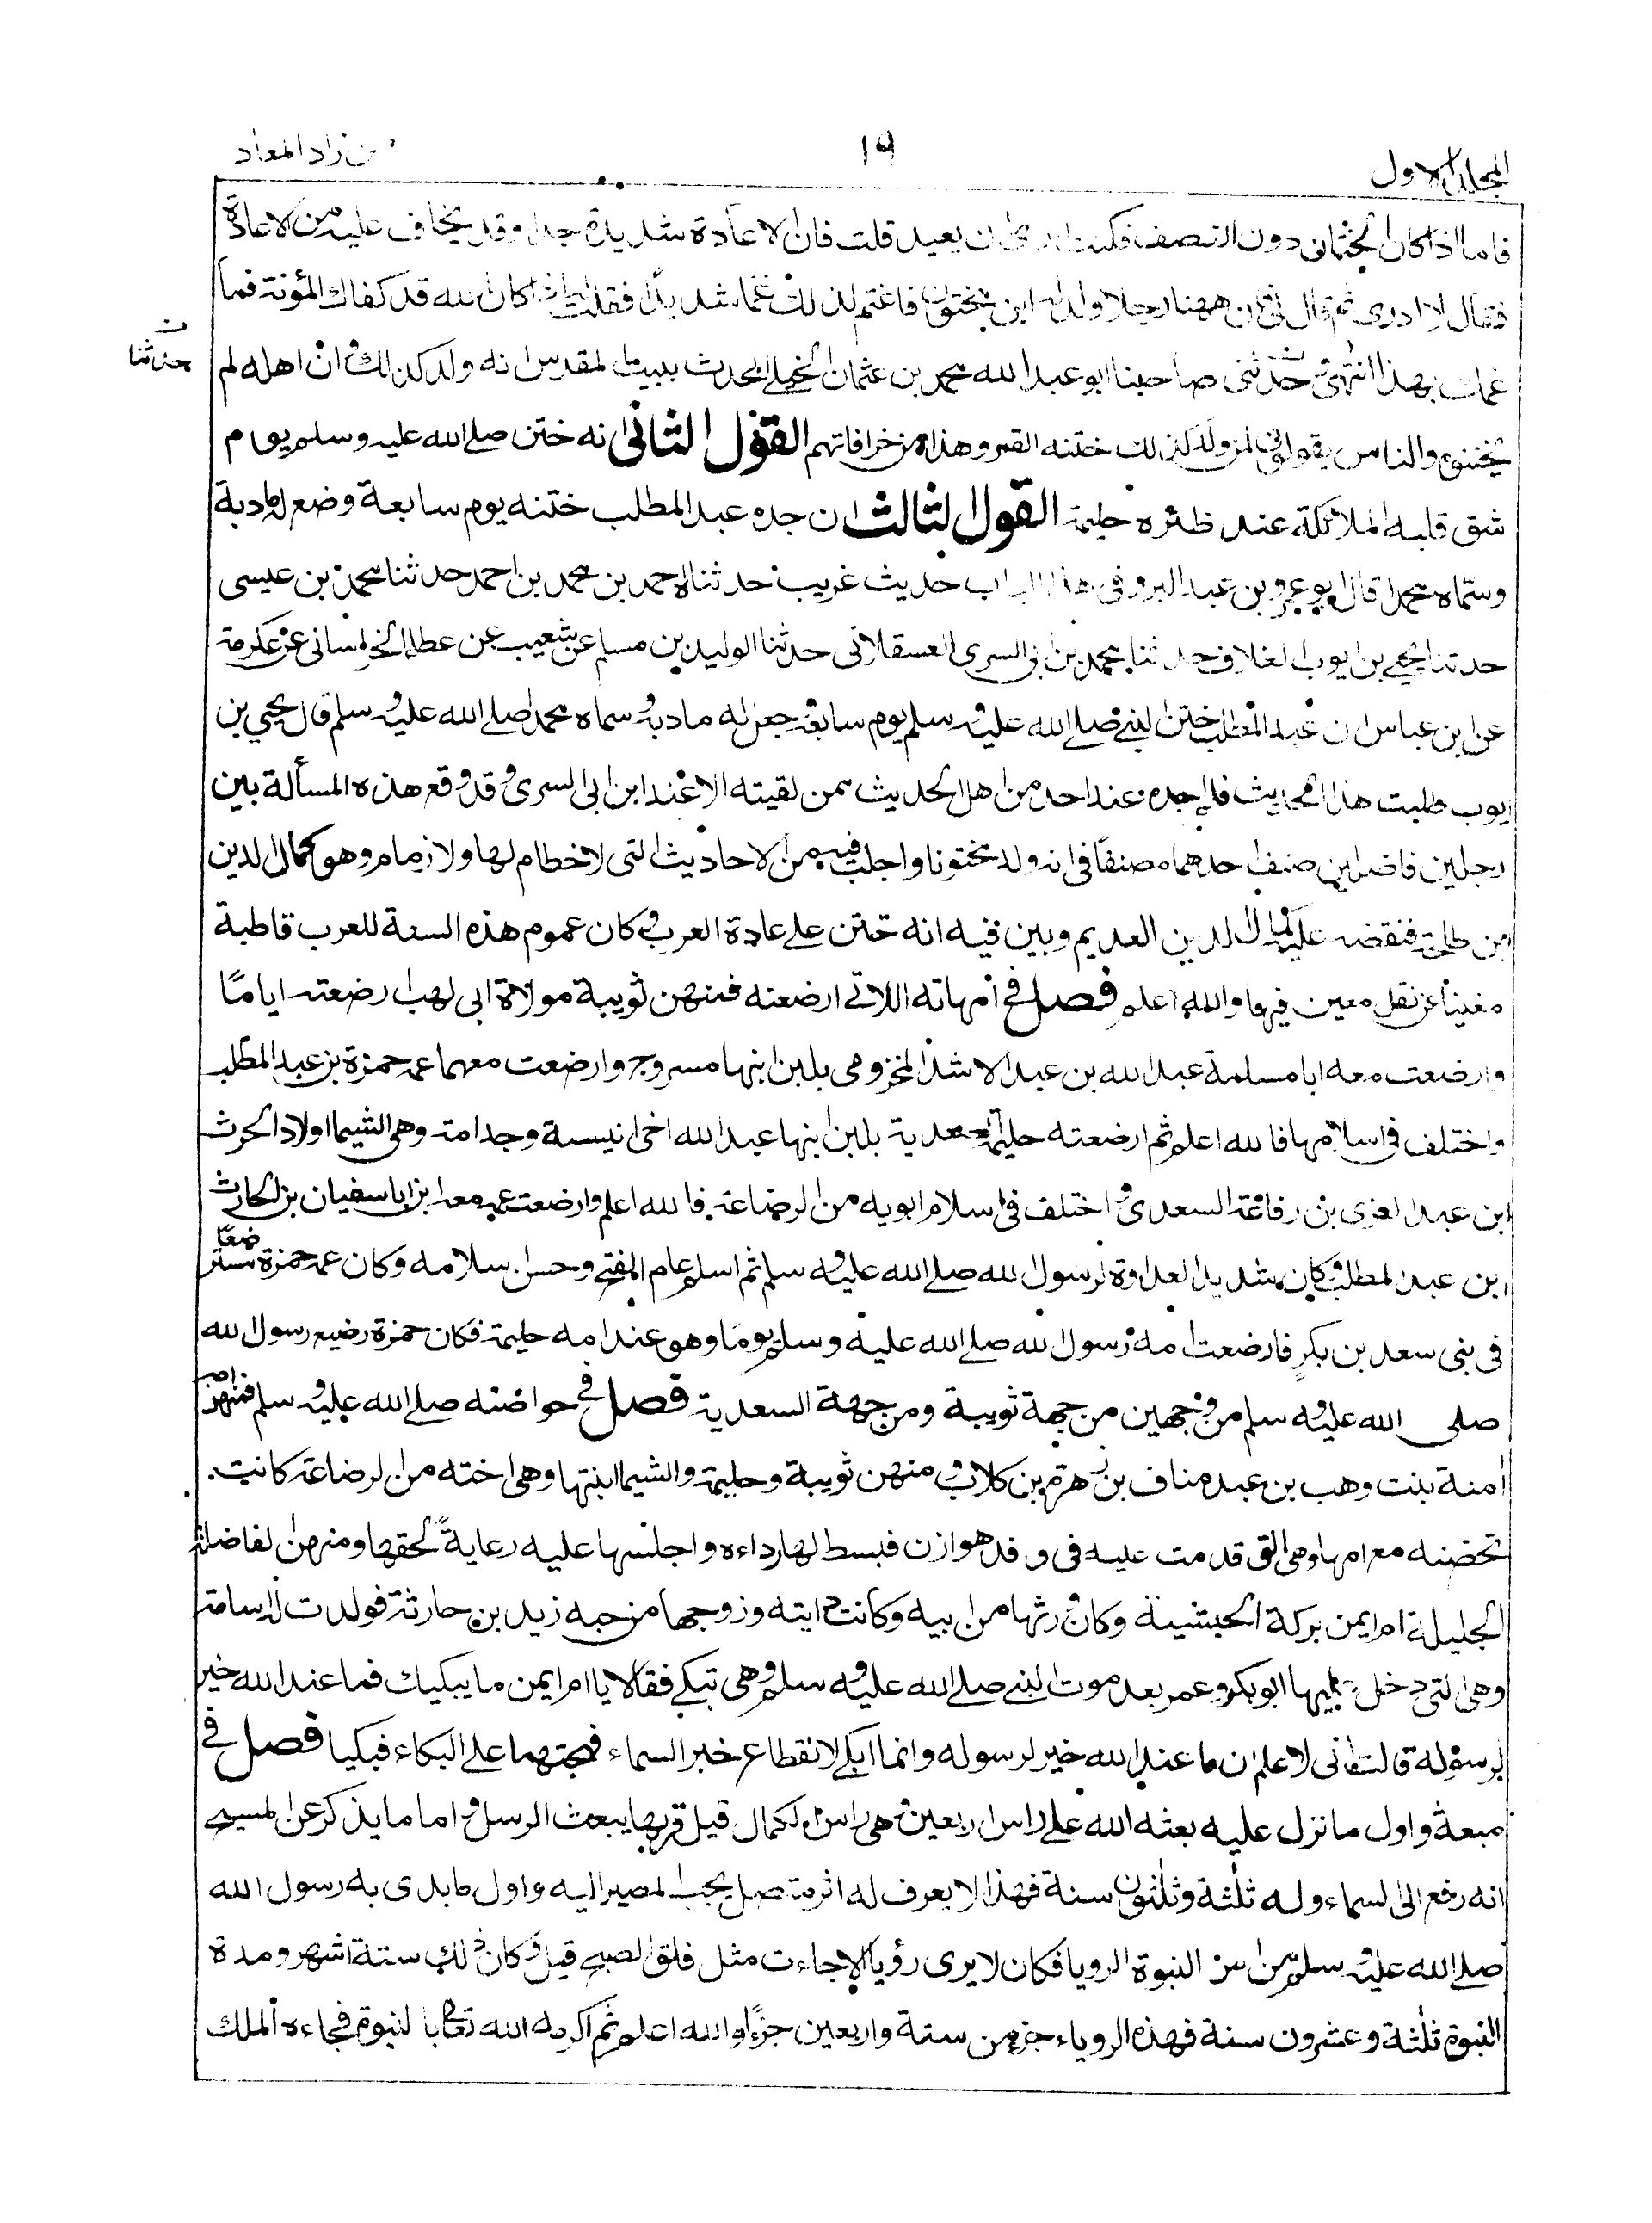 المجلد الاول
١٩
من زاد المعاد
فاما اذا كان الختان دون النصف فكنت ارى ان يعيد قلت فان الاعادة شديدة جدا وقد يخاف عليه من الاعادة
فقال لا ادرى ثم قال لى فان ههنا رجلا ولد له ابن مختون فاغتم لذلك غما شديدا فقلت له اذا كان الله قد كفاك المؤنة فما
غمك بهذا انتهى وحدثنى صاحبنا ابو عبد الله محمد بن عثمان الخليلى المحدث ببيت المقدس انه ولد كذلك وان اهله لم
حدثنا
يختنوه والناس يقولون لمن ولد كذلك ختنه القمر وهذا من خرافاتهم القول الثانى انه ختن صلى الله عليه وسلم يوم
شق قلبه الملائكة عند ظئره حليمة القول الثالث ان جده عبد المطلب ختنه يوم سابعة وضع له مادبة
وسماه محمدا قال ابو عمرو بن عبد البر وفى هذا الباب حديث غريب حدثناه احمد بن محمد بن احمد حدثنا محمد بن عيسى
حدثنا يحيى بن ايوب العلاف حدثنا محمد بن ابى السرى العسقلانى حدثنا الوليد بن مسلم عن شعيب عن عطاء الخراسانى عن عكرمة
عن ابن عباس ان عبد المطلب ختن النبى صلى الله عليه وسلم يوم سابعه وجعل له مادبة وسماه محمدا صلى الله عليه وسلم قال يحيى بن
ايوب طلبت هذا الحديث فلم اجده عند احد من اهل الحديث ممن لقيته الا عند ابن ابى السرى وقد وقع هذه المسألة بين
رجلين فاضلين صنف احدهما مصنفا فى انه ولد مختونا واجلب فيه من الاحاديث التى لا خطام لها ولا زمام وهو كمال الدين
بن طلحة فنقضه عليه كمال الدين بن العديم وبين فيه انه ختن على عادة العرب وكان عموم هذه السنة للعرب قاطبة
مغنيا عن نقل معين فيها والله اعلم فصل فى امهاته اللاتى ارضعنه فمنهن ثويبة مولاة ابى لهب ارضعته اياما
وارضعت معه ابا سلمة عبد الله بن عبد الاشد المخزومى بلبن ابنها مسروح وارضعت معهما عمه حمزة بن عبد المطلب
واختلف فى اسلامها فالله اعلم ثم ارضعته حليمة السعدية بلبن ابنها عبد الله اخى انيسة وجدامة وهى الشيما اولاد الحرث
ابن عبد العزى بن رفاعة السعدى واختلف فى اسلام ابويه من الرضاعة فالله اعلم وارضعت معه ابن عمه ابا سفيان بن الحارث
ابن عبد المطلب وكان شديد العداوة لرسول الله صلى الله عليه وسلم ثم اسلم عام الفتح وحسن اسلامه وكان عمه حمزة مسترضعا
فى بنى سعد بن بكر فارضعت امه رسول الله صلى الله عليه وسلم يوما وهو عند امه حليمة فكان حمزة رضيع رسول الله
صلى الله عليه وسلم من وجهين من جهة ثويبة ومن جهة السعدية فصل فى حواضنه صلى الله عليه وسلم فمنهن امه
آمنة بنت وهب بن عبد مناف بن زهرة بن كلاب ومنهن ثويبة وحليمة والشيما ابنتها وهى اخته من الرضاعة كانت
تحضنه مع امها وهى التى قدمت عليه فى وفد هوازن فبسط لها رداءه واجلسها عليه رعاية لحقها ومنهن الفاضلة
الجليلة ام ايمن بركة الحبشية وكان ورثها من ابيه وكانت دايته وزوجها من حبه زيد بن حارثة فولدت له اسامة
وهى التى دخل عليها ابو بكر وعمر بعد موت النبى صلى الله عليه وسلم وهى تبكى فقالا يا ام ايمن ما يبكيك فما عند الله خير
لرسوله قالت انى لاعلم ان ما عند الله خير لرسوله وانما ابكى لانقطاع خبر السماء فهيجتهما على البكاء فبكيا فصل فى
مبعثه واول ما نزل عليه بعثه الله على راس اربعين وهى راس الكمال قيل وبها يبعث الرسل واما ما يذكر عن المسيح
انه رفع الى السماء وله ثلثة وثلثون سنة فهذا لا يعرف له اثر متصل يجب المصير اليه واول ما بدى به رسول الله
صلى الله عليه وسلم من امر النبوة الرويا فكان لا يرى رؤيا الا جاءت مثل فلق الصبح قيل وكان ذلك ستة اشهر ومدة
النبوة ثلثة وعشرون سنة فهذه الروياء جزء من ستة واربعين جزءا والله اعلم ثم اكرمه الله تعالى بالنبوة فجاءه الملك